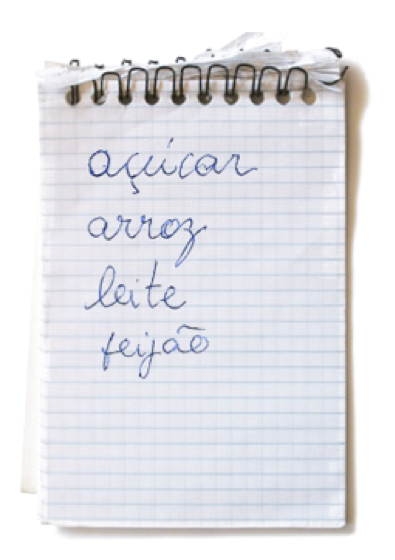 açúcar
arroz
leite
feijão